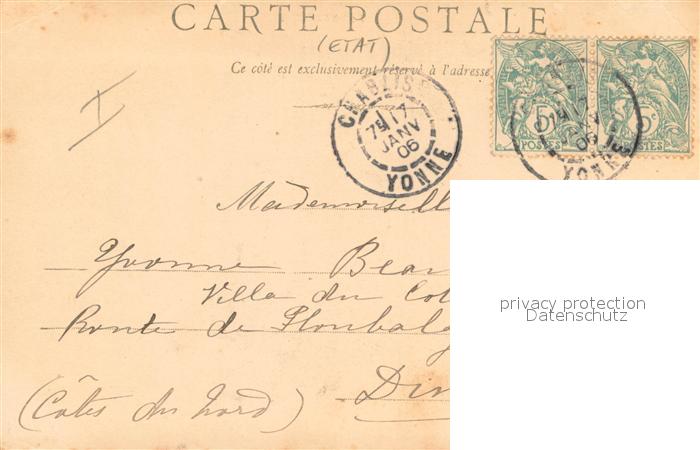 CARTE POSTALE
(ETAT)
Ce côté est exclusivement réservé à l'adresse
I
CHABLIS
7E 17
JANV
06
YONNE
5c
POSTES
JANV
06
YONNE
Mademoisell
Yvonne Beau
Villa du Col
Route de Ploubalay
Din
(Côtes du Nord)
privacy protection
Datenschutz